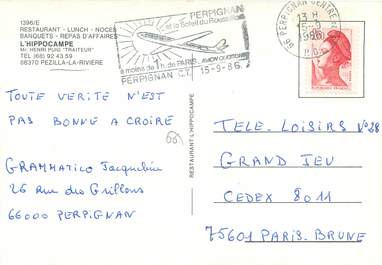 1396/E
RESTAURANT - LUNCH - NOCES
BANQUETS - REPAS D'AFFAIRES
L'HIPPOCAMPE
Mr. HENRI PUIG "TRAITEUR"
TEL (68) 92 43 59
66370 PEZILLA-LA-RIVIÈRE
PERPIGNAN
et le Soleil du Roussillon
à moins de 1h. de PARIS, AVION QUOTIDIEN
PERPIGNAN C.T. 15-9-86
66 PERPIGNAN
13 H
15-9
1986
TOUTE VERITE N'EST
PAS BONNE A CROIRE
GRAMMATICO Jacqueline
26 Rue des Grillons
66000 PERPIGNAN
RESTAURANT L'HIPPOCAMPE
TELE-LOISIRS N°28
GRAND JEU
CEDEX 8011
75601 PARIS-BRUNE